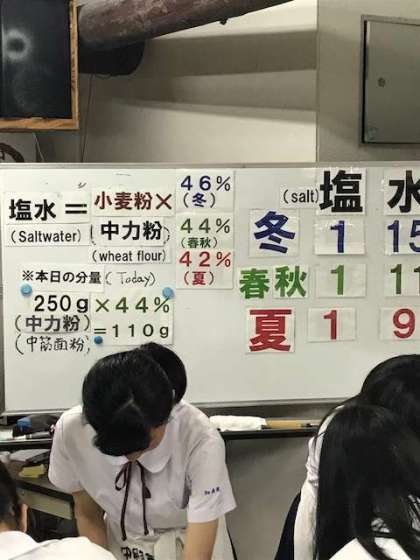 塩水＝小麦粉×
(Saltwater)
(中力粉)
(wheat flour)
46%
(冬)
44%
(春秋)
42%
(夏)
※本日の分量(Today)
250g×44%
(中力粉)＝110g
(中筋面粉)
(salt)塩 水
冬 1 15
春秋 1 11
夏 1 9